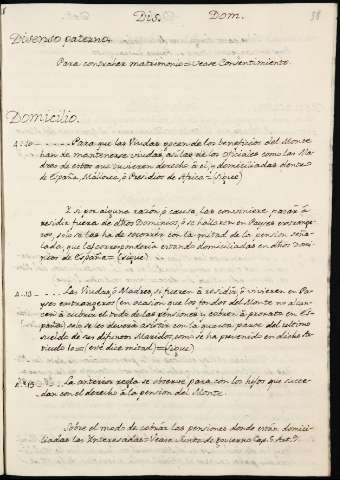 Dis. Dom. 38
Disenso paterno.
Para contraher matrimonio = Vease Consentimiento.
Domicilio.
4.. 10 Para que las Viudas gocen de los beneficios del Monte
han de mantenerse viudas, asi las de los oficiales como las Ma
dres de estos que tuvieren derecho à èl, y domiciliadas dentro
de España, Mallorca, ò Presidios de Africa = (Sigue)
Y si por alguna razòn, ò causa, las conviniere pasar à
residir fuera de dhos Dominios, ò se hallaren en Payses extrange
ros, solo se las ha de socorrer con la mitad de la pensiòn seña
lada, que las corresponderia estando domiciliadas en dhos Domi
nios de España = (sigue)
4.. 13 Las Viudas, ò Madres, si fueren à residir, ò vivieren en Pa
yses extrangeros (en ocasion que los fondos del Monte no alcan
cen à cubrir el todo de las pensiones y entren à prorrata en Es
paña) solo se les deverà asistir con la quarta parte del ultimo
sueldo de sus difuntos Maridos, como se ha prevenido en dicho Ar
ticulo 10 = (esto dice mitad) = (Sigue)
4.. 13 La anterior regla se observe para con los hijos que succe
dan con el derecho à la pensiòn del Monte.
Sobre el modo de cobrar las pensiones donde estàn domici
liadas las Interesadas = Vease Junta de Govierno Cap. 5. Art. 7.